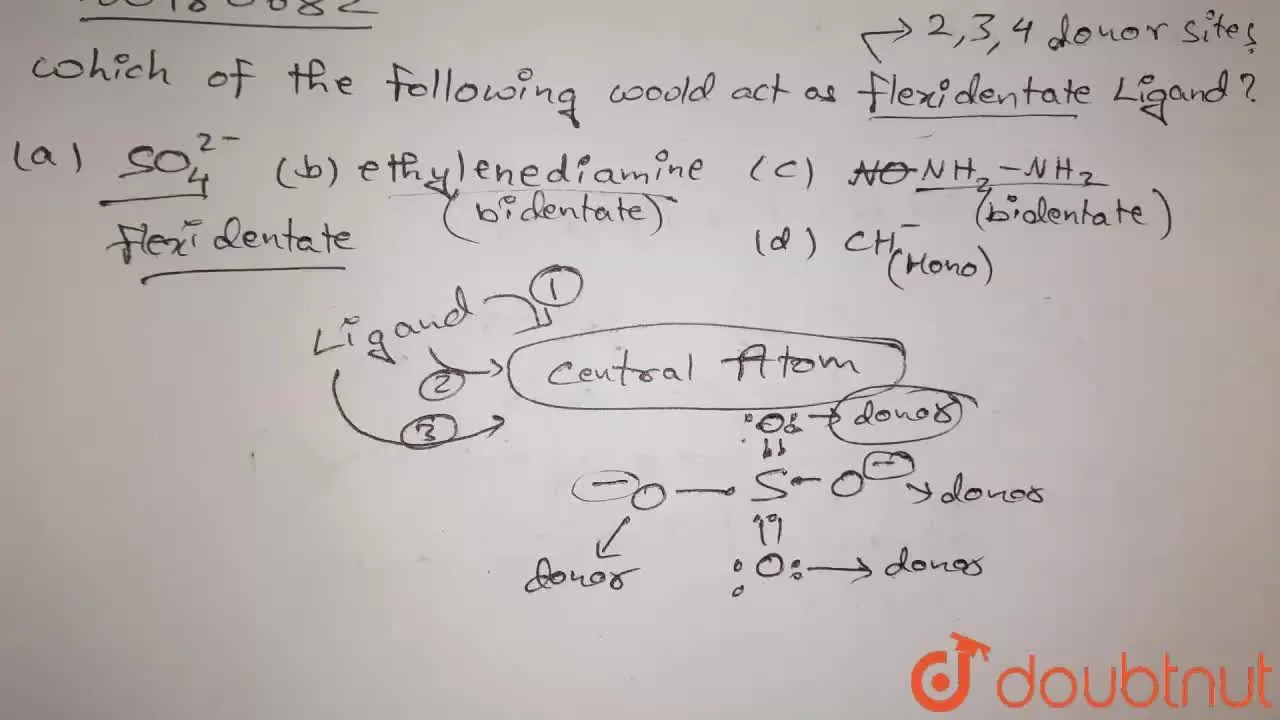 → 2,3,4 donor sites
which of the following would act as flexidentate Ligand?
(a) SO₄²⁻ (b) ethylenediamine (c) NH₂-NH₂
(bidentate) (bidentate)
flexidentate (d) CH⁻
(Mono)
Ligand ①
② Central Atom
③
:O: → donor
⊖O — S - O⊖ → donor
donor :O: → donor
doubtnut